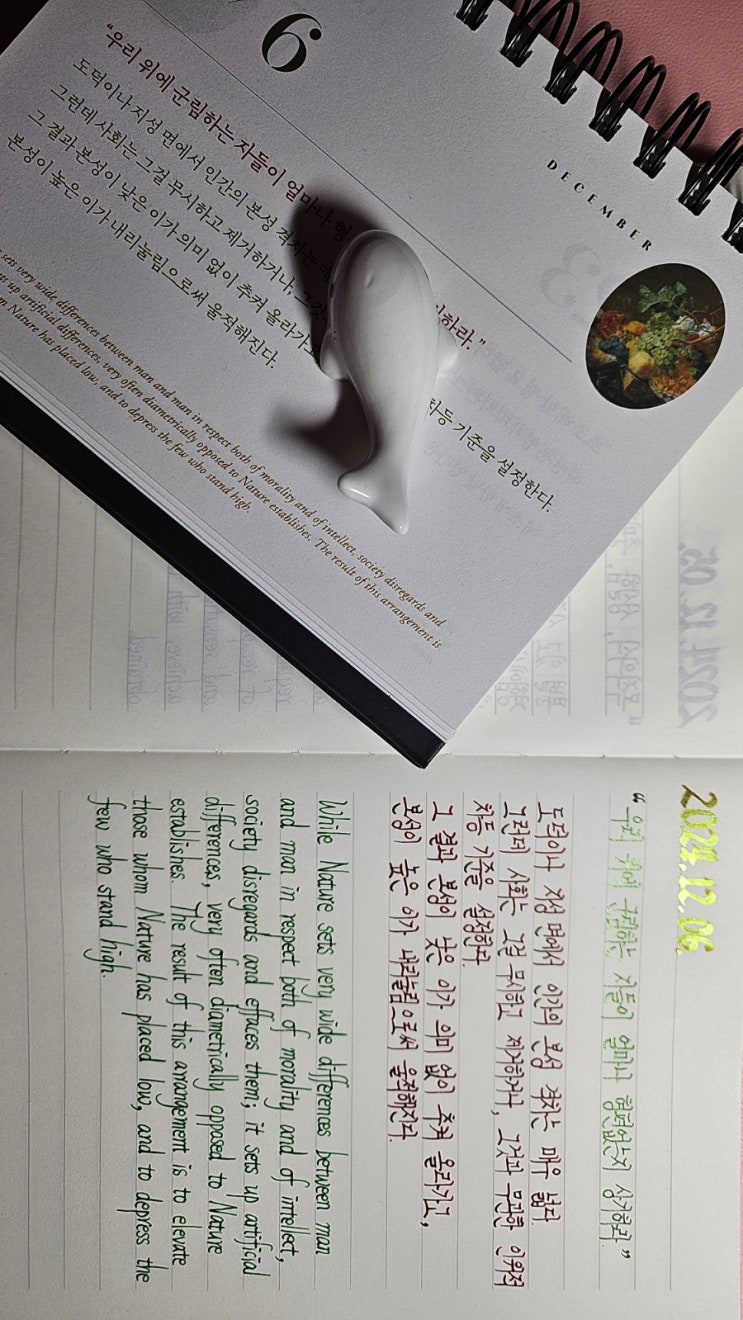 6
DECEMBER
"우리 위에 군림하는 자들이 얼마나 형
하라."
도덕이나 지성 면에서 인간의 본성 격차는 매
그런데 사회는 그걸 무시하고 제거하거나, 그것
차등 기준을 설정한다.
그 결과 본성이 낮은 이가 의미 없이 추켜 올라가고
본성이 높은 이가 내리눌림으로써 울적해진다.
sets very wide differences between man and man in respect both of morality and of intellect, society disregards and
sets up artificial differences, very often diametrically opposed to Nature establishes. The result of this arrangement is
Nature has placed low, and to depress the few who stand high.
2024.12.05
2024.12.06.
"우리 위에 군림하는 자들이 얼마나 형편없는지 상기하라."
도덕이나 지성 면에서 인간의 본성 격차는 매우 넓다.
그런데 사회는 그걸 무시하고 제거하거나, 그것과 무관한 인위적
차등 기준을 설정한다.
그 결과 본성이 낮은 이가 의미 없이 추켜 올라가고,
본성이 높은 이가 내리눌림으로써 울적해진다.
While Nature sets very wide differences between man
and man in respect both of morality and of intellect,
society disregards and effaces them; it sets up artificial
differences, very often diametrically opposed to Nature
establishes. The result of this arrangement is to elevate
those whom Nature has placed low, and to depress the
few who stand high.